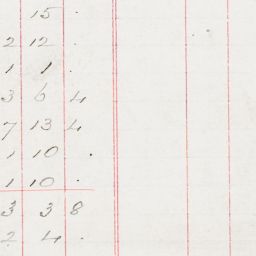 15 .
2 12 .
1 1 .
3 6 4
7 13 4
1 10 .
1 10 .
3 3 8
2 4 .